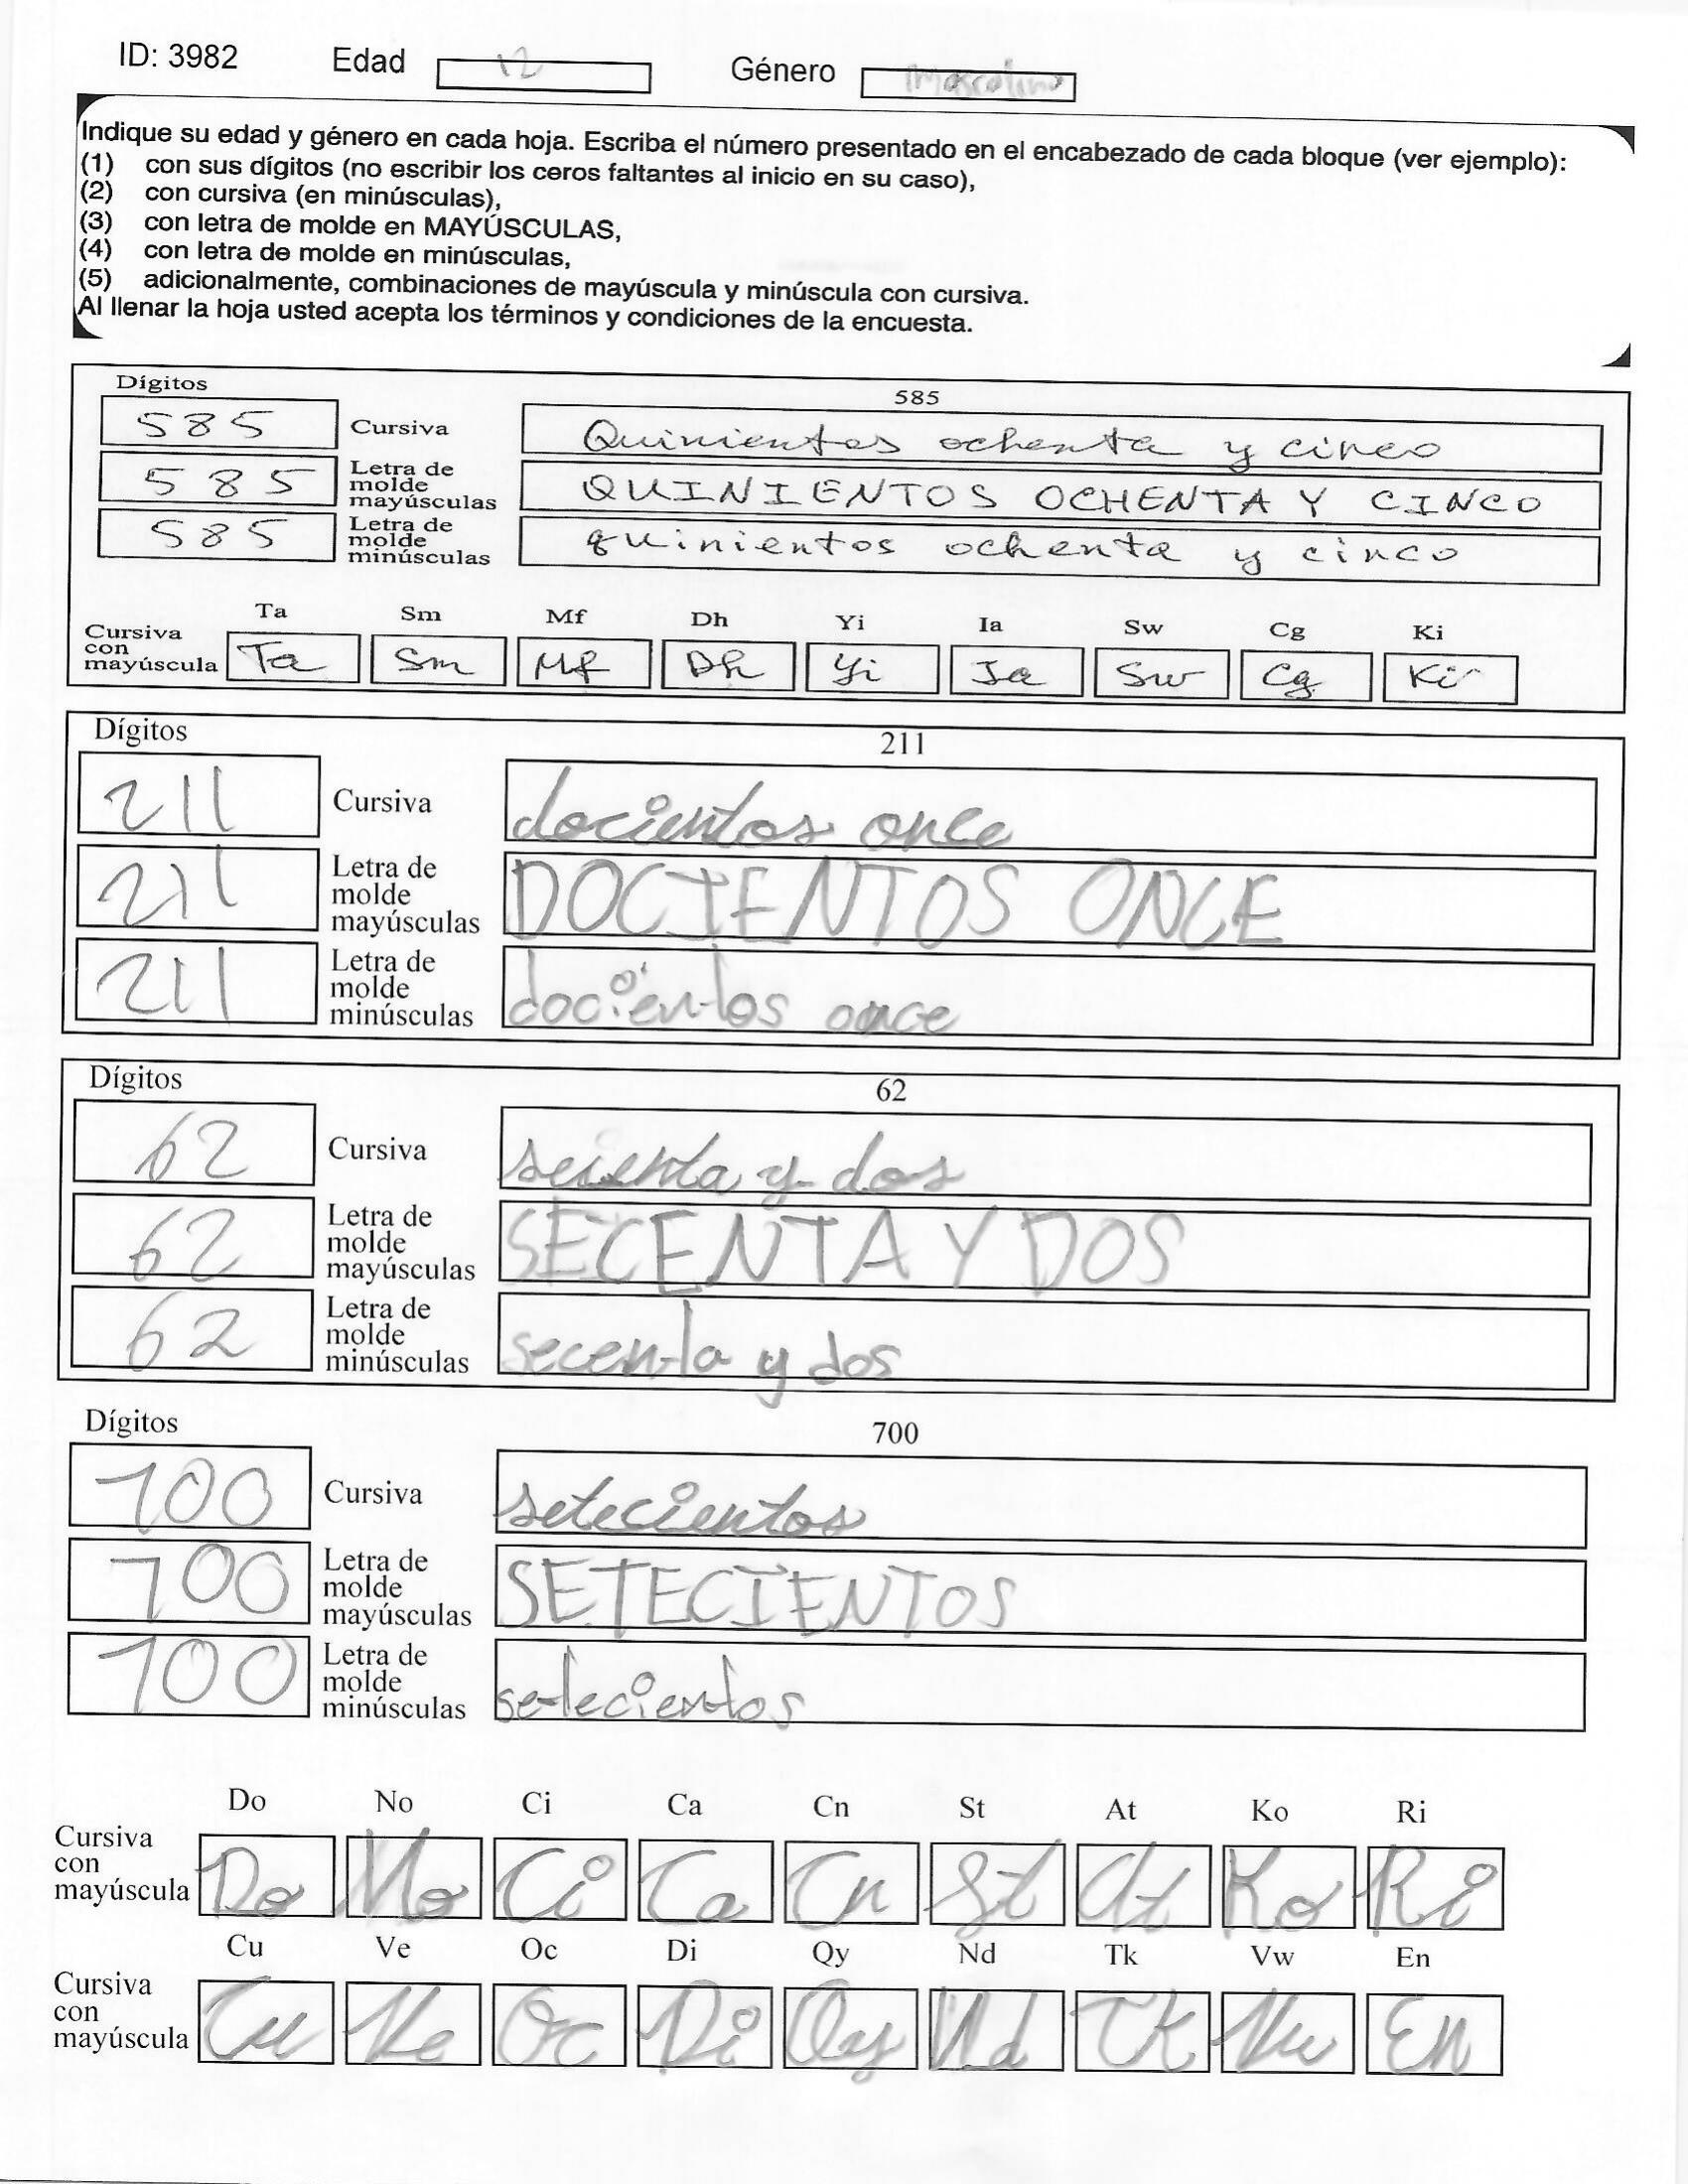 ID: 3982 Edad 12 Género Mascolino
Indique su edad y género en cada hoja. Escriba el número presentado en el encabezado de cada bloque (ver ejemplo):
(1) con sus dígitos (no escribir los ceros faltantes al inicio en su caso),
(2) con cursiva (en minúsculas),
(3) con letra de molde en MAYÚSCULAS,
(4) con letra de molde en minúsculas,
(5) adicionalmente, combinaciones de mayúscula y minúscula con cursiva.
Al llenar la hoja usted acepta los términos y condiciones de la encuesta.
Dígitos 585
585 Cursiva Quinientos ochenta y cinco
585 Letra de molde mayúsculas QUINIENTOS OCHENTA Y CINCO
585 Letra de molde minúsculas quinientos ochenta y cinco
Ta Sm Mf Dh Yi Ia Sw Cg Ki
Cursiva con mayúscula Ta Sm Mf Dh Yi Ia Sw Cg Ki
Dígitos 211
211 Cursiva docientos once
211 Letra de molde mayúsculas DOCIENTOS ONCE
211 Letra de molde minúsculas docientos once
Dígitos 62
62 Cursiva y dos
62 Letra de molde mayúsculas SECENTA Y DOS
62 Letra de molde minúsculas secenta y dos
Dígitos 700
700 Cursiva setecientos
700 Letra de molde mayúsculas SETECIENTOS
700 Letra de molde minúsculas setecientos
Do No Ci Ca Cn St At Ko Ri
Cursiva con mayúscula Do No Ci Ca Cn St At Ko Ri
Cu Ve Oc Di Qy Nd Tk Vw En
Cursiva con mayúscula Cu Ve Oc Di Qy Nd Tk Vw En